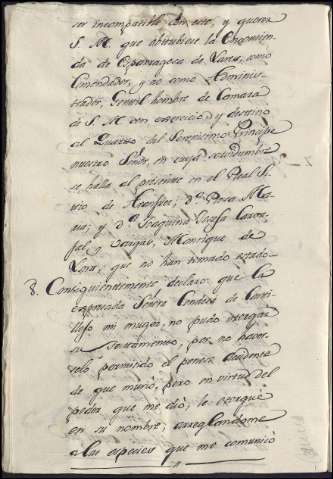 ser incompatible con este, y querer
S. M. que obtubiese la Encomien-
da de como
Comendador, y no como Adminis-
trador, Gentil hombre de Camara
de S. M. con exercicio, y destino
al Quarto del Serenisimo Principe
nuestro Señor, en cuya servidumbre
se halla al presente en el Real Si-
tio de Aranjuez; D.ª
y D.ª Joaquina
y Manrique de
Lara, que no han tomado estado.
8. Consiguientemente declaro: que la
expresada Señora Condesa de
mi muger, no pudo otorgar
su Testamento, por no haver-
selo permitido el accidente
de que murio, pero en virtud del
poder que me dió, le otorgué
en su nombre, arreglandome
a las especies que me comunicó